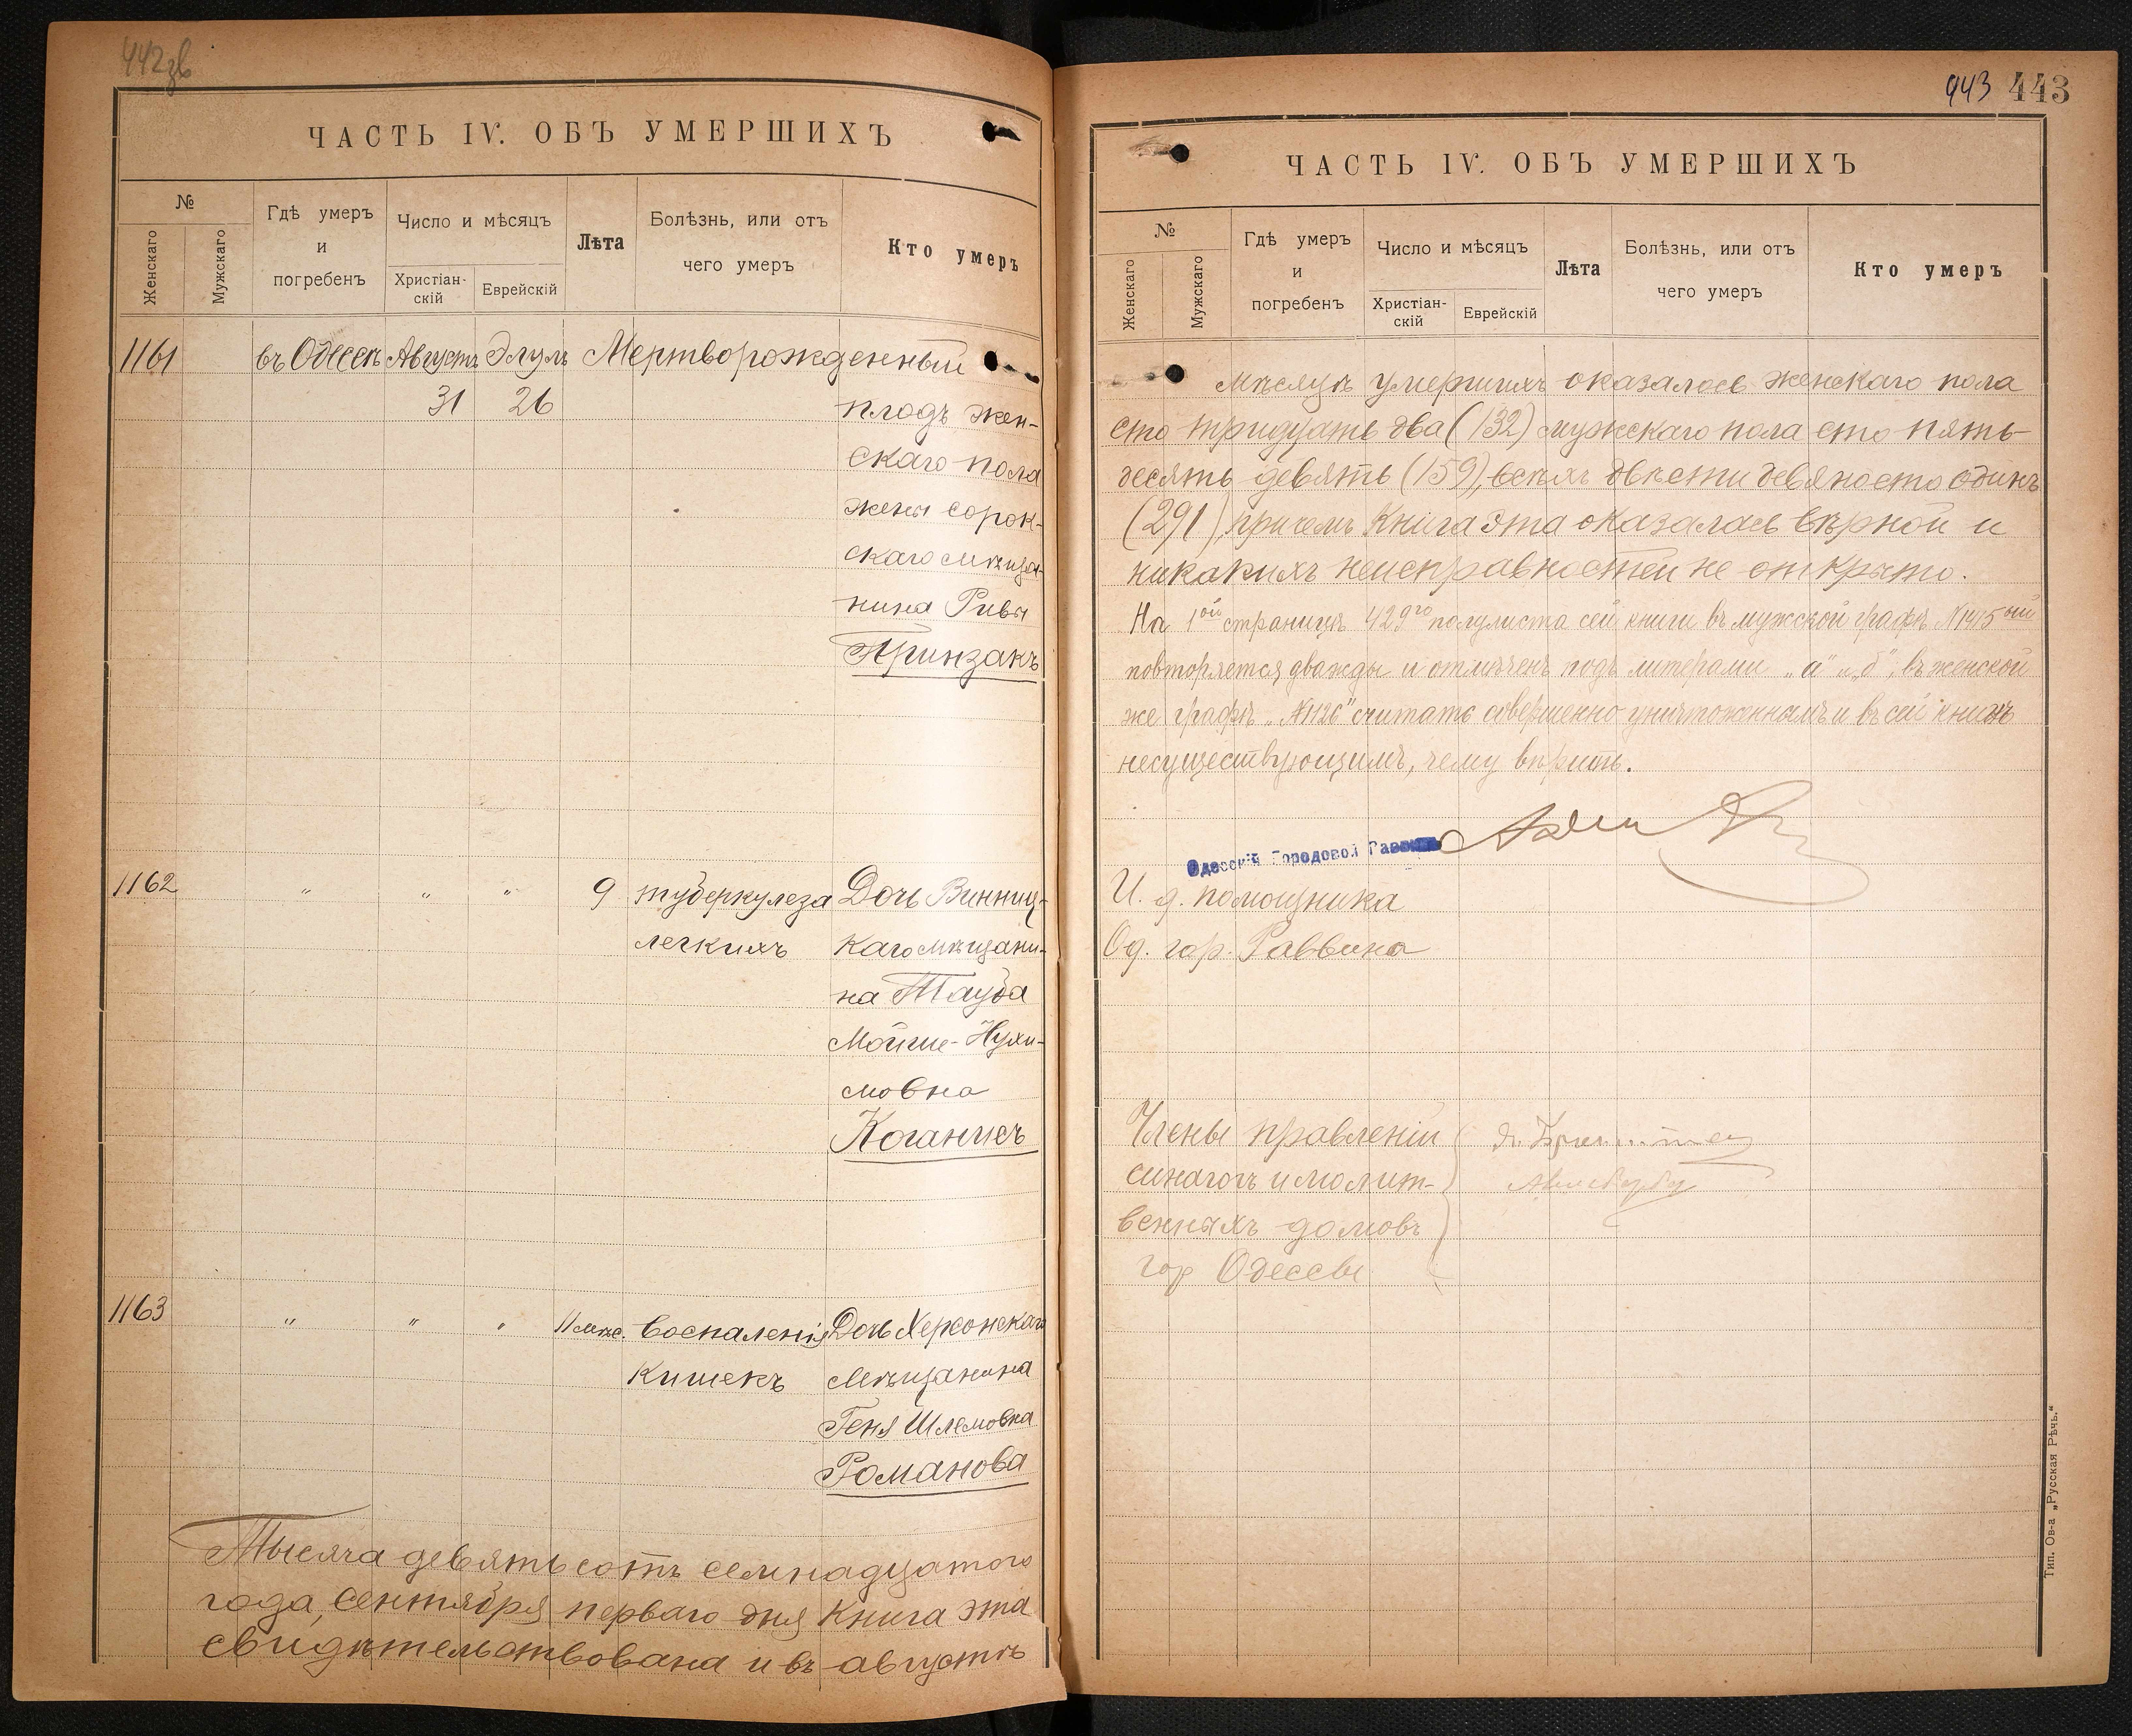 442зв
ЧАСТЬ IV. ОБЪ УМЕРШИХЪ
№
Женскаго
Мужскаго
Гдѣ умеръ
и
погребенъ
Число и мѣсяцъ
Христіан-
скій
Еврейскій
Лѣта
Болѣзнь, или отъ
чего умеръ
Кто умеръ
1161 въ Одессѣ Августъ Элулъ Мертворожденный
31 26 плодъ жен-
скаго пола
жены сорок-
скаго мѣща-
нина Ривы
Принзакъ
1162 " " " 9 туберкулеза Дочь Винниц-
легкихъ каго мѣщани-
на Тауба
Мойше-Нухи-
мовна
Коганисъ
1163 " " " 11 мѣс. воспаленія Дочь Херсонскаго
кишекъ мѣщанина
Геня Шлемовна
Романова
Тысяча девятьсотъ семнадцатого
года, сентября перваго дня книга эта
свидѣтельствована и въ августѣ
443 443
ЧАСТЬ IV. ОБЪ УМЕРШИХЪ
№
Женскаго
Мужскаго
Гдѣ умеръ
и
погребенъ
Число и мѣсяцъ
Христіан-
скій
Еврейскій
Лѣта
Болѣзнь, или отъ
чего умеръ
Кто умеръ
мѣсяцѣ умершихъ оказалось женскаго пола
сто тридцать два (132) мужскаго пола сто пять-
десять девять (159), всѣхъ двѣсти девяносто одинъ
(291), причемъ книга эта оказалась вѣрной и
никакихъ неисправностей не открыто.
На 1ой страницѣ 429го полулиста сей книги въ мужской графѣ №1415ый
повторяется дважды и отмѣченъ подъ литерами "а" и "б", въ женской
же графѣ "№1126" считать совершенно уничтоженнымъ и въ сей книгѣ
несуществующимъ, чему вѣрить.
Одесскій Городовой Раввинъ
И. д. помощника
Од. гор. Раввина
Члены правленій
синагогъ и молит-
венныхъ домовъ
гор Одессы
Тип. Ов-а „Русская Рѣчь."